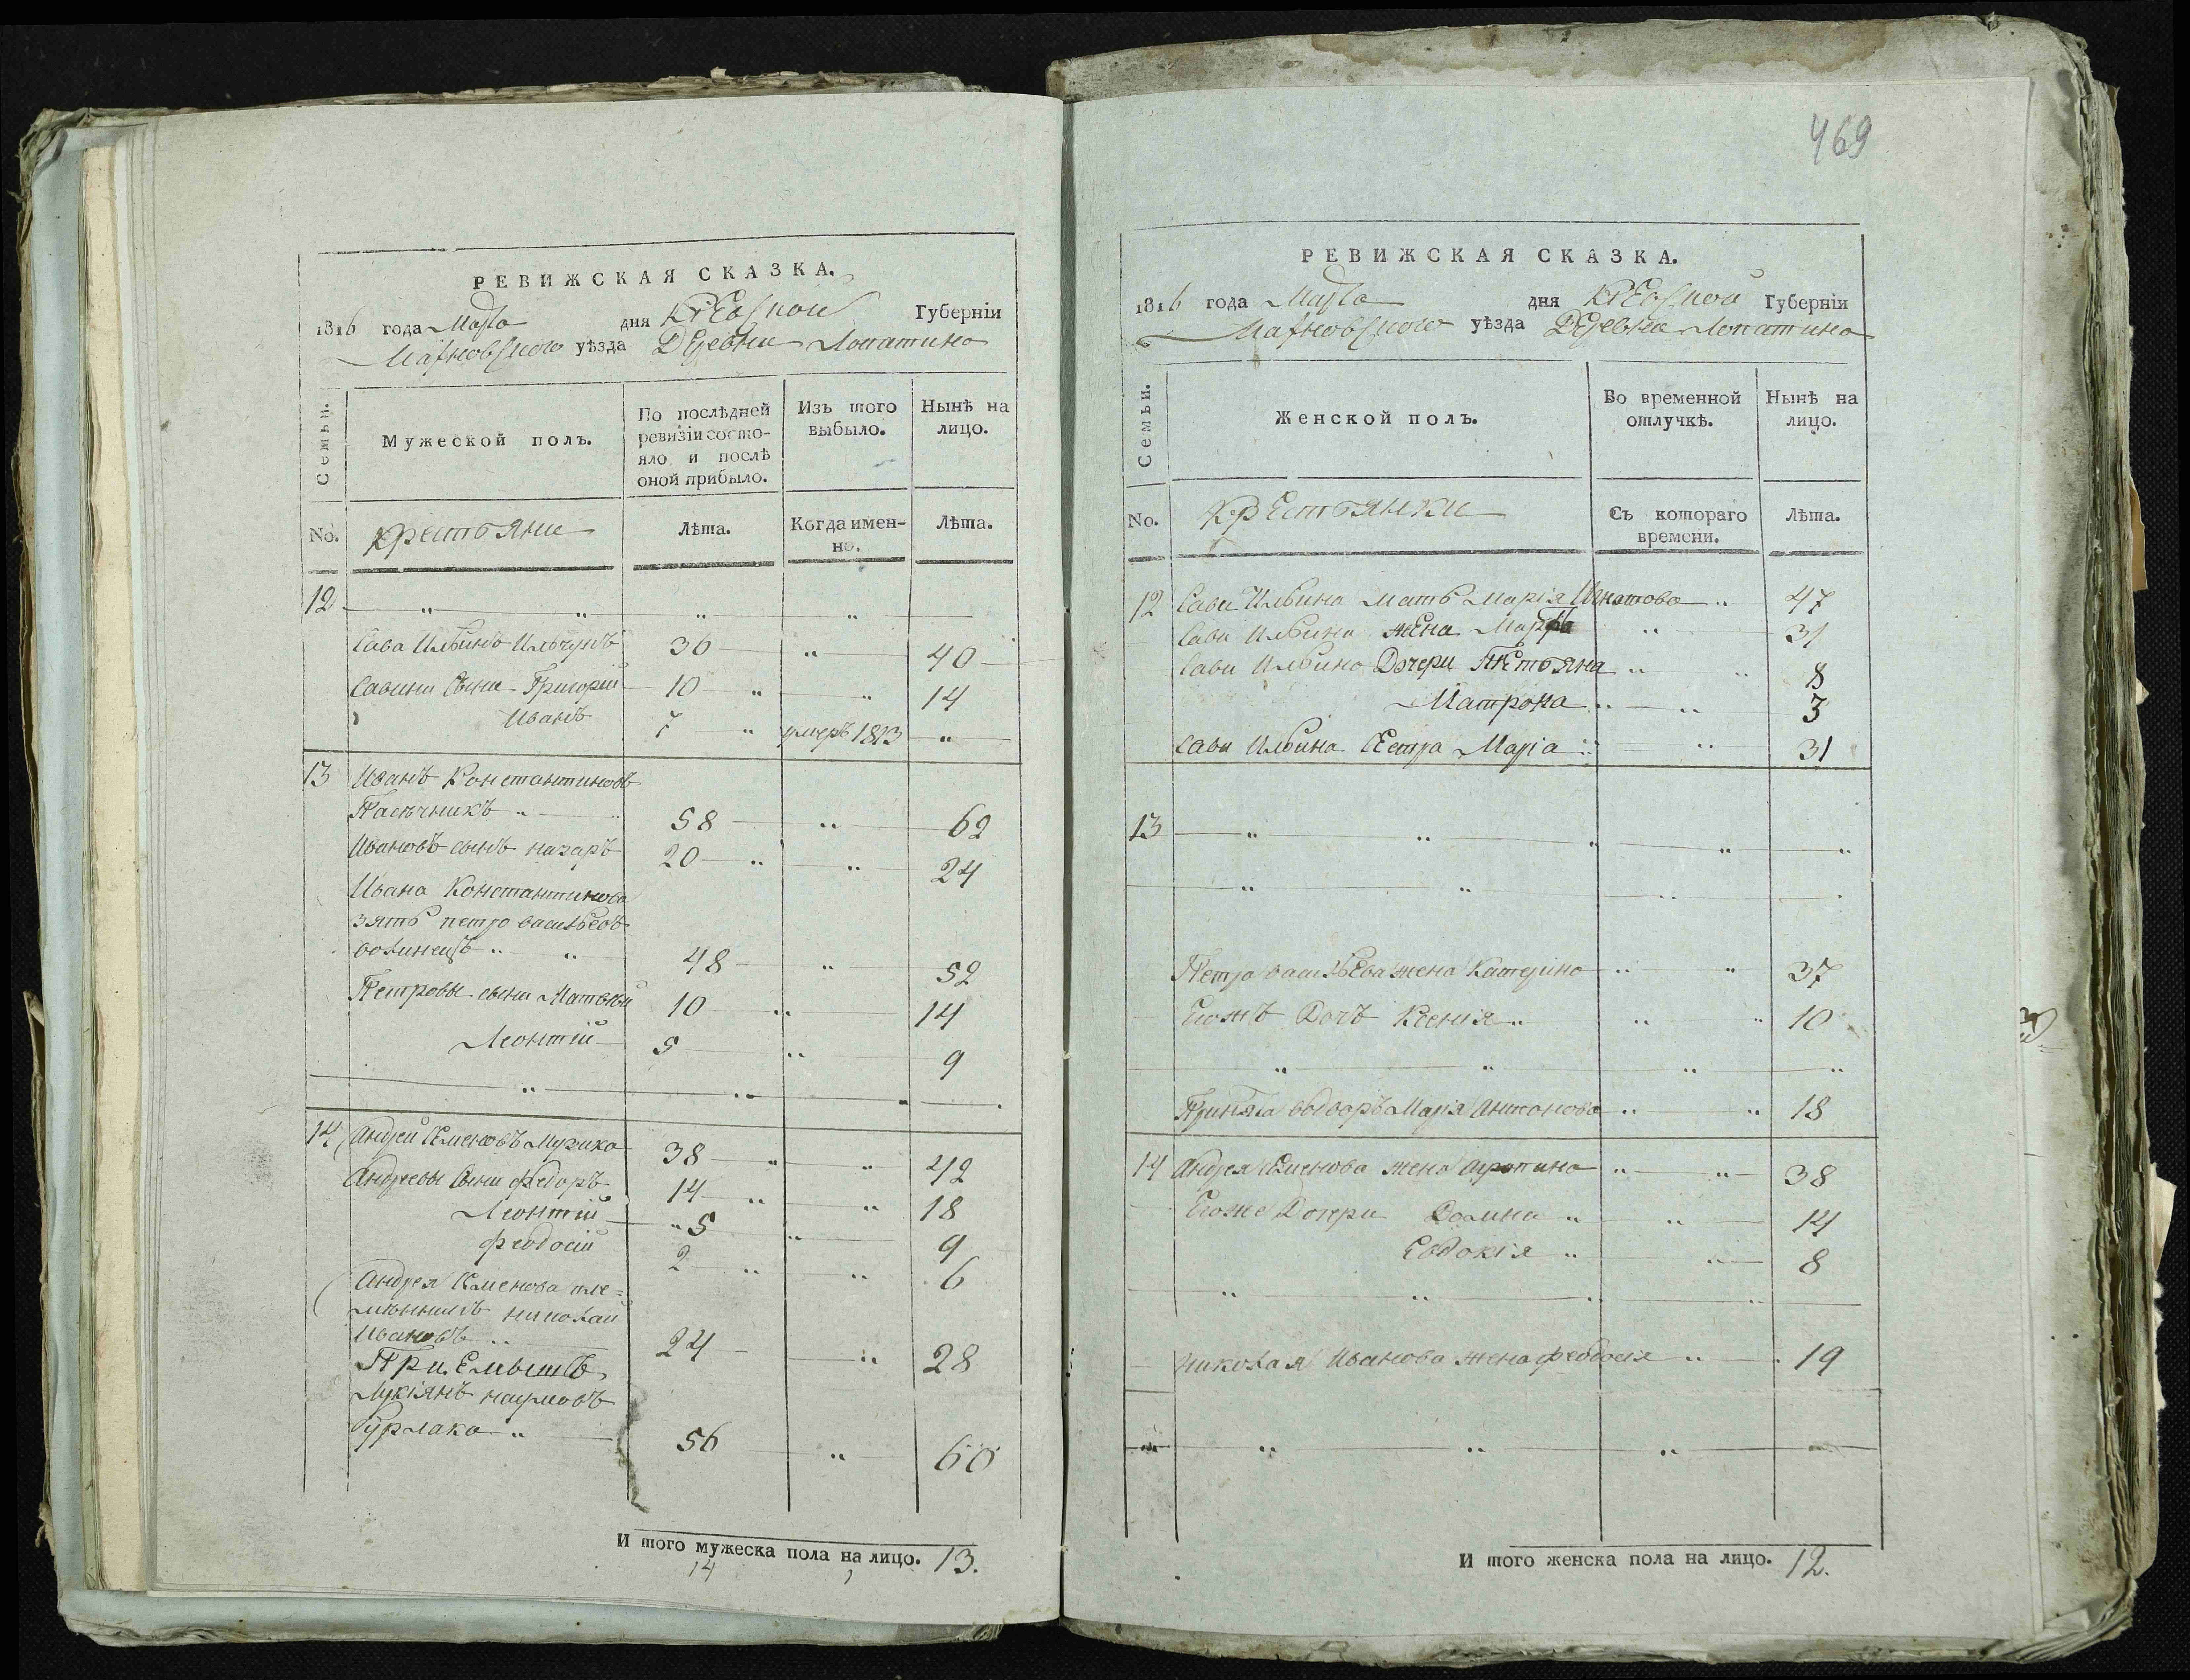 РЕВИЖСКАЯ СКАЗКА.
1816 года Марта дня Кіевской Губерніи
Махновского уѣзда Деревни Лопатина
Семьи.
Мужеской полъ.
По послѣдней ревизіи состояло и послѣ оной прибыло.
Изъ того выбыло.
Нынѣ на лицо.
No. крестьяне
Лѣта.
Когда именно.
Лѣта.
12
Сава Ильинъ 36 40
Савины сыни Григорій 10 14
Иванъ 7 умеръ 1813
13 Иванъ Константиновъ
Пасѣчникъ 58 62
Ивановъ сынъ назаръ 20 24
Ивана Константинова
зять петро васильевъ
волинецъ 48 52
Петровы сыни Матвѣй 10 14
Леонтій 5 9
14 Андрей Семеновъ Музика 38 42
Андреевы Сыни федоръ 14 18
Леонтій 5 9
феодосій 2 6
Андрея Семенова пле=
мѣнникъ николай
Ивановъ 24 28
При. Емышъ
Лукіянъ наумовъ
бурлака 56 60
И того мужеска пола на лицо. 13.
14
469
РЕВИЖСКАЯ СКАЗКА.
1816 года Марта дня Кіевской Губерніи
Махновского уѣзда Деревни Лопатина
Семьи.
Женской полъ.
Во временной отлучкѣ.
Нынѣ на лицо.
No. крестьянки
Съ котораго времени.
Лѣта.
12 Сави Ильина мать Марія Игнатова 47
Сави Ильина жена Марфа 31
Сави Ильина Дочери 8
Матрона 3
Сави Ильина Сестра Марія 31
13
Петра васильева жена Катерина 37
Егожъ Дочъ Ксенія 10
Принята Марія Антонова 18
14 Андрея Семенова жена 38
Егоже Дочери Домина 14
Евдокія 8
николая Иванова жена феодосія 19
И того женска пола на лицо. 12.